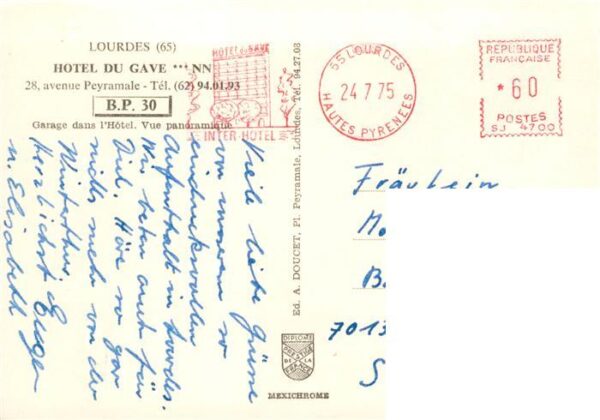 LOURDES (65)
HOTEL DU GAVE ***NN
28, avenue Peyramale - Tél. (62) 94.01.93
B.P. 30
Garage dans l'Hôtel. Vue panoramique
HOTEL du GAVE
INTER HOTEL
55 LOURDES
24 7 75
HAUTES PYRENEES
REPUBLIQUE
FRANCAISE
*60
POSTES
SJ 4700
Viele liebe Grüsse
von unserem so
eindrucksvollen
Aufenthalt in Lourdes.
Wir beten auch für
Dich. Höre so gar
nichts mehr von der
Winterthur
Herzlichst
u. Elisabeth
Ed. A. DOUCET, Pl. Peyramale, Lourdes, Tél. 94.27.08
Fräulein
M
B.
7013
S
DIPLOME
PRESTIGE
DE LA
FRANCE
MEXICHROME